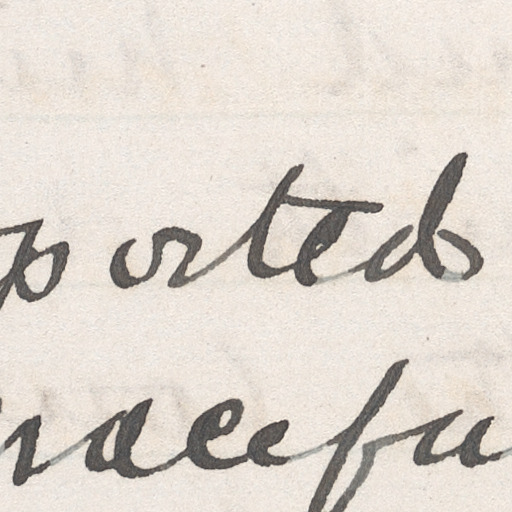 ported
racefu